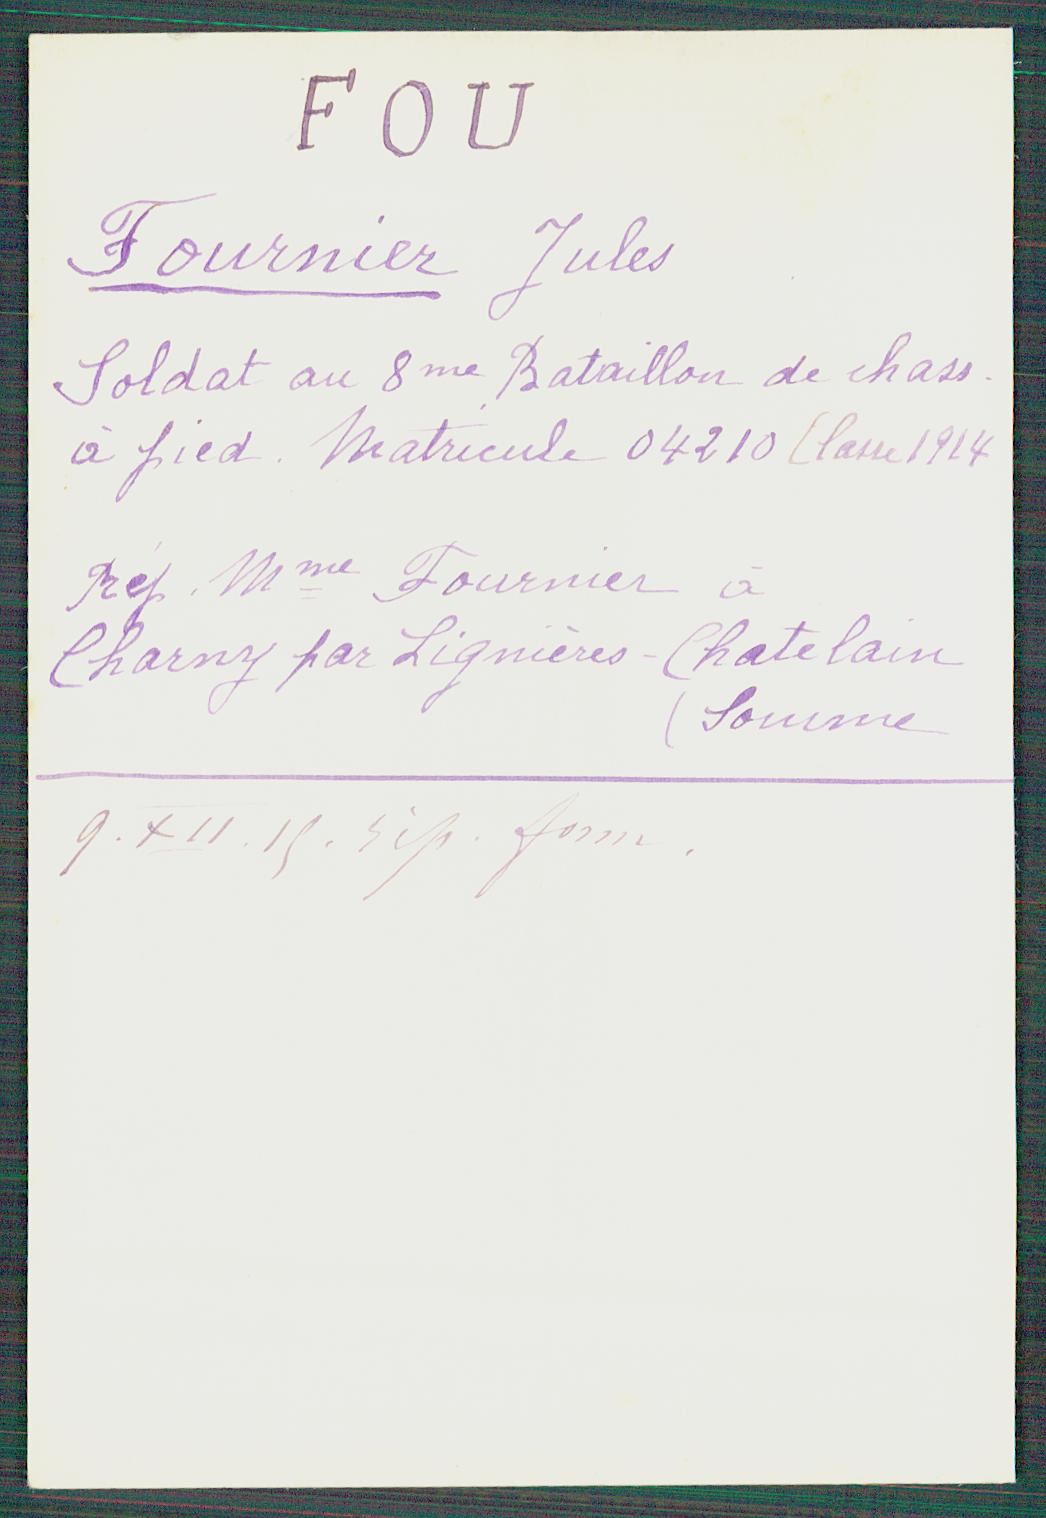 FOU
Fournier Jules
Soldat au 8me Bataillon de chass.
à pied. Matricule 04210 Classe 1914
Rép. Mme Fournier à
Charny par Lignières-Chatelain
(Somme
9.XII.15. rép. form.